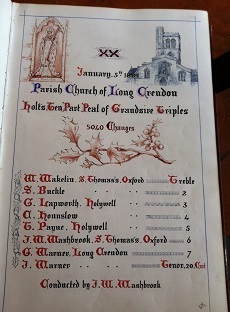 XX
January. 5th 18
Parish Church of Long Crendon
Holts Ten Part Peal of Grandsire Triples
5040 Changes
W. Wakelin, S. Thomas's, Oxford Treble
S. Buckle 2
G. Lapworth, Holywell 3
C. Hounslow 4
T. Payne, Holywell 5
J. W. Washbrook, S. Thomas's, Oxford 6
G. Warner, Long Crendon 7
J. Warner Tenor, 20. Cwt
Conducted by J. W. Washbrook